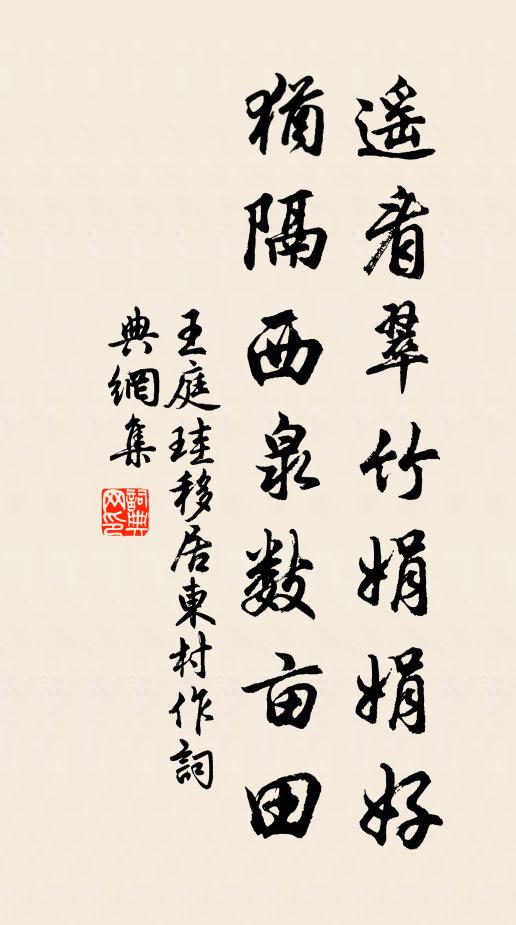 遥看翠竹娟娟好
猶隔西泉数亩田
王庭珪移居東村作詞
典網集
詞典网印